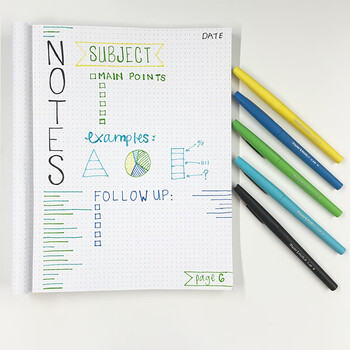 DATE
NOTES
SUBJECT
MAIN POINTS
examples:
FOLLOW UP:
page 6